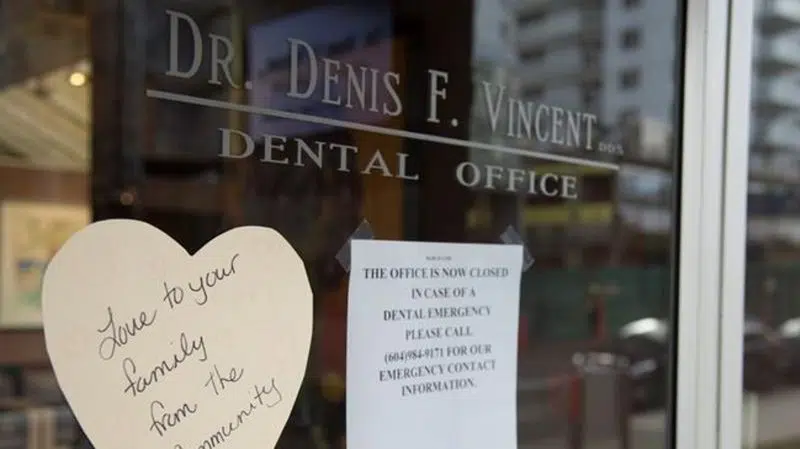 DR. DENIS F. VINCENT DDS
DENTAL OFFICE
Love to your
family
from the
THE OFFICE IS NOW CLOSED
IN CASE OF A
DENTAL EMERGENCY
PLEASE CALL
(604)984-9171 FOR OUR
EMERGENCY CONTACT
INFORMATION.